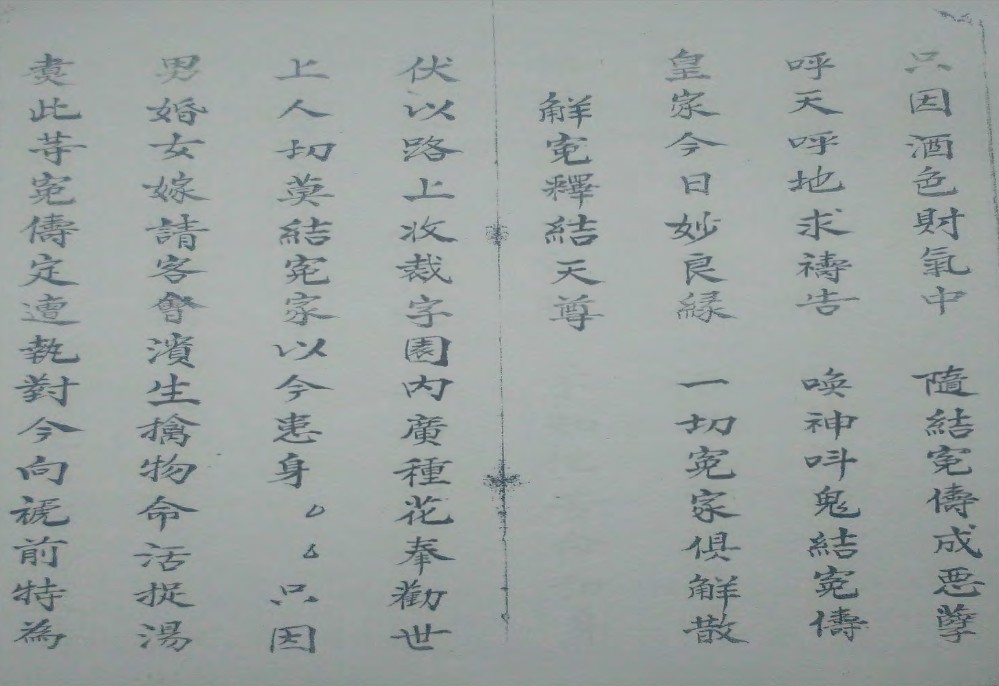 只因酒色財氣中 隨結寃儔成惡孽
呼天呼地求禱告 喚神呌鬼結寃儔
皇家今日妙良緣 一切寃家俱觧散
觧寃釋結天尊
伏以路上收裁字園內廣種花奉勸世
上人切莫結寃家以今患身 只因
男婚女嫁請客會濱生擒物命活捉湯
此等寃儔定遭執對今向 前特為